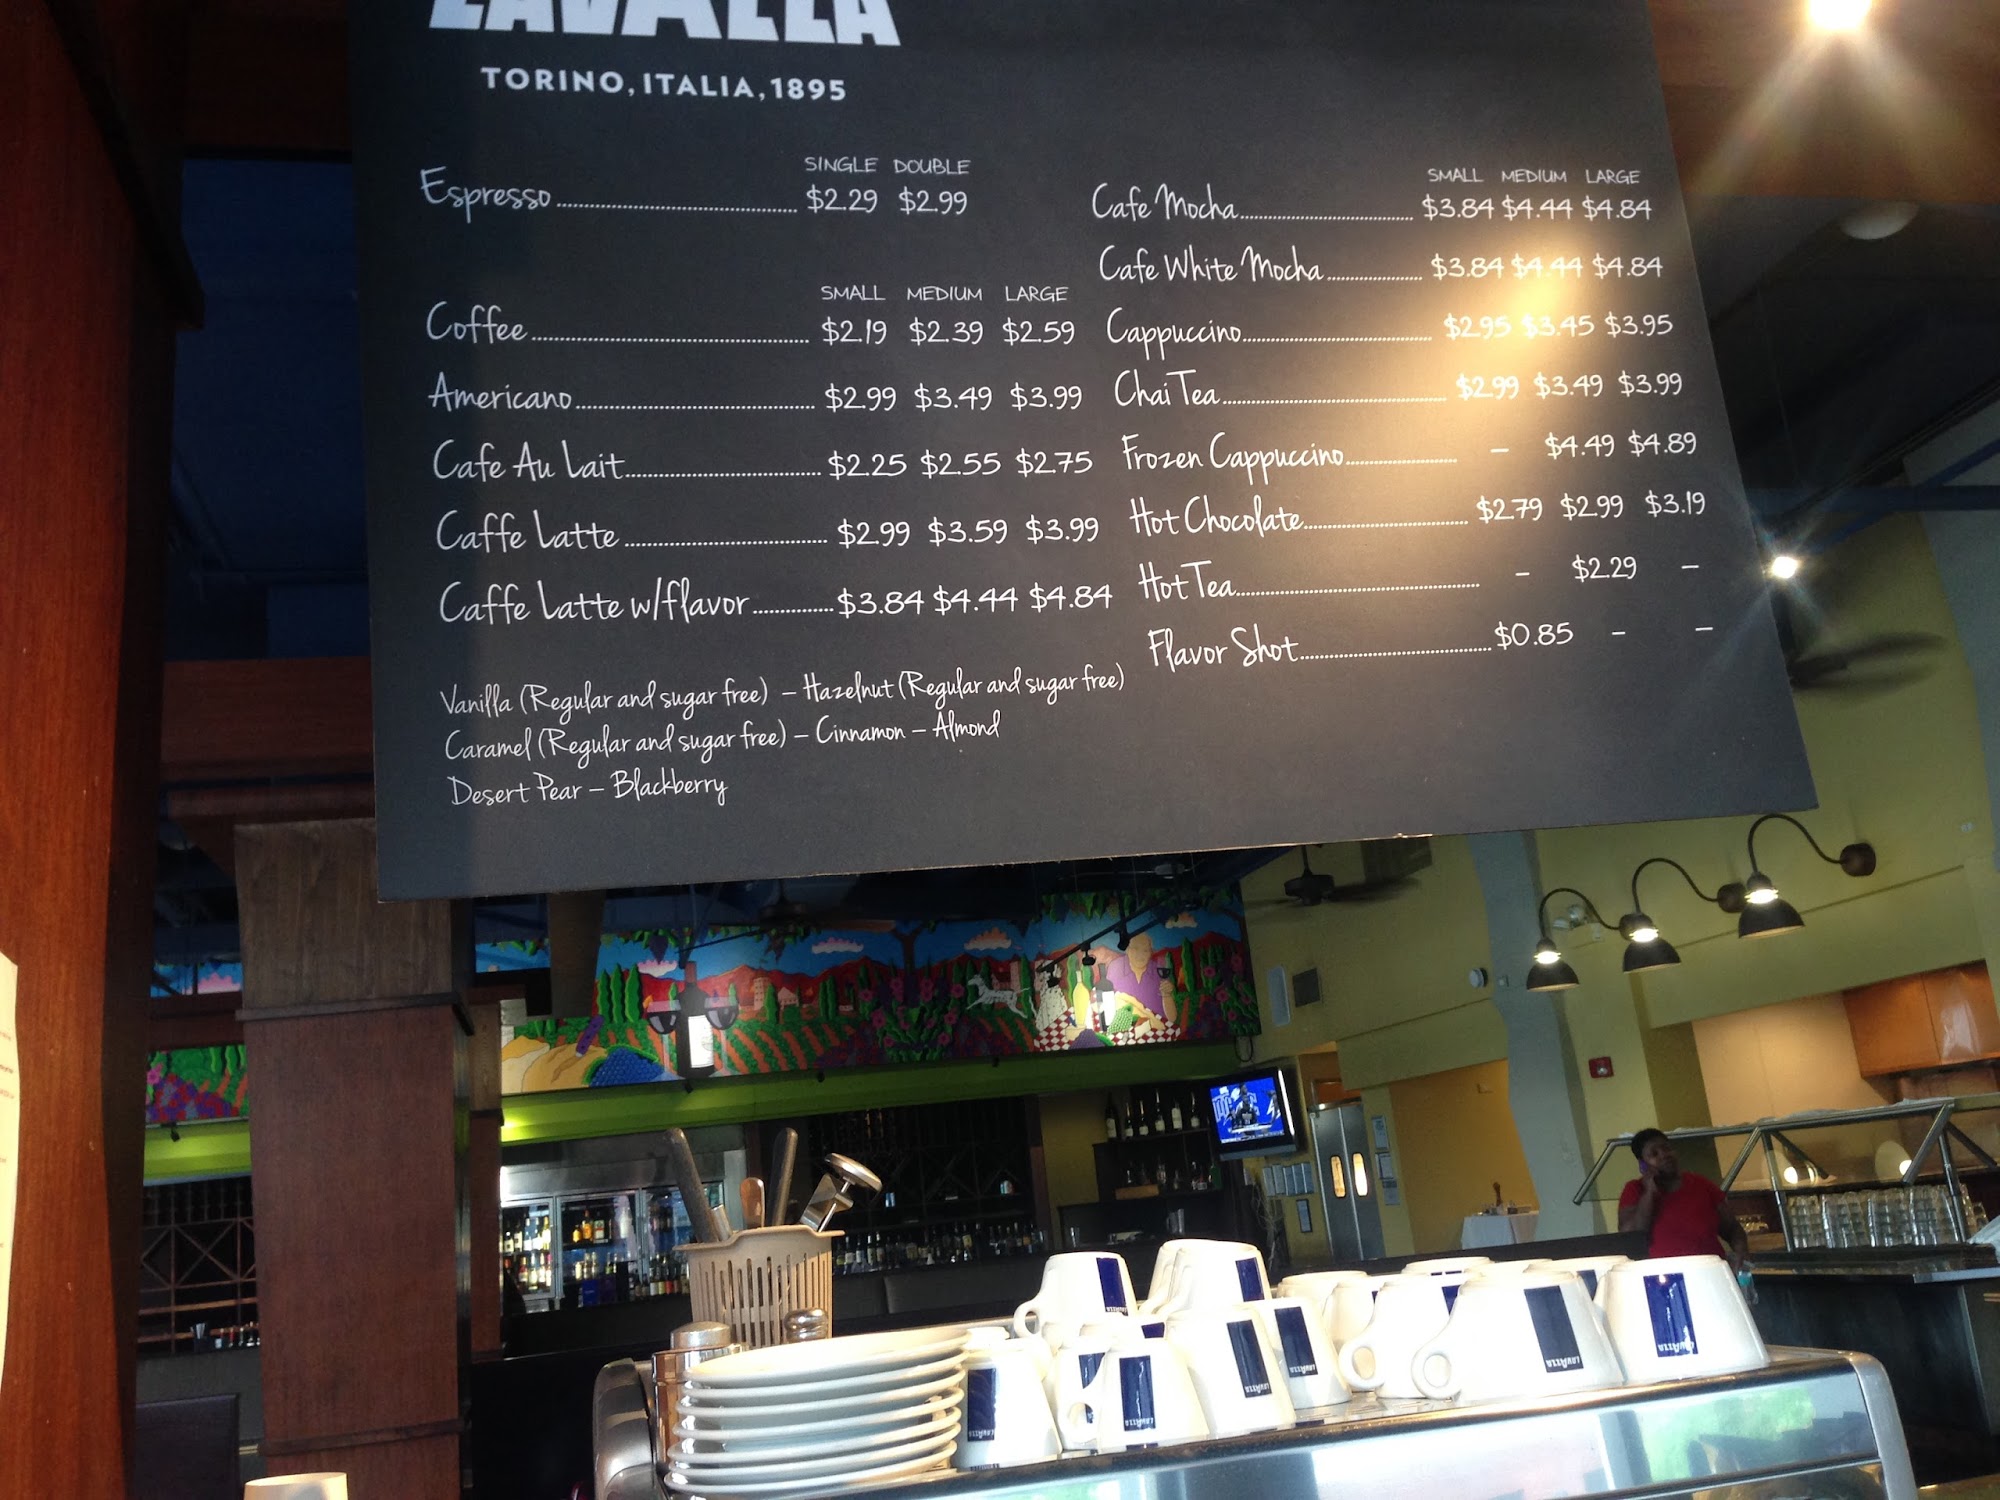 LAVAZZA
TORINO, ITALIA, 1895
SINGLE DOUBLE
Espresso $2.29 $2.99
SMALL MEDIUM LARGE
Coffee $2.19 $2.39 $2.59
Americano $2.99 $3.49 $3.99
Cafe Au Lait $2.25 $2.55 $2.75
Caffe Latte $2.99 $3.59 $3.99
Caffe Latte w/flavor $3.84 $4.44 $4.84
Vanilla (Regular and sugar free) – Hazelnut (Regular and sugar free)
Caramel (Regular and sugar free) – Cinnamon – Almond
Desert Pear – Blackberry
SMALL MEDIUM LARGE
Cafe Mocha $3.84 $4.44 $4.84
Cafe White Mocha $3.84 $4.44 $4.84
Cappuccino $2.95 $3.45 $3.95
Chai Tea $2.99 $3.49 $3.99
Frozen Cappuccino – $4.49 $4.89
Hot Chocolate $2.79 $2.99 $3.19
Hot Tea – $2.29 –
Flavor Shot $0.85 – –
LAVAZZA
LAVAZZA
LAVAZZA
LAVAZZA
LAVAZZA
LAVAZZA